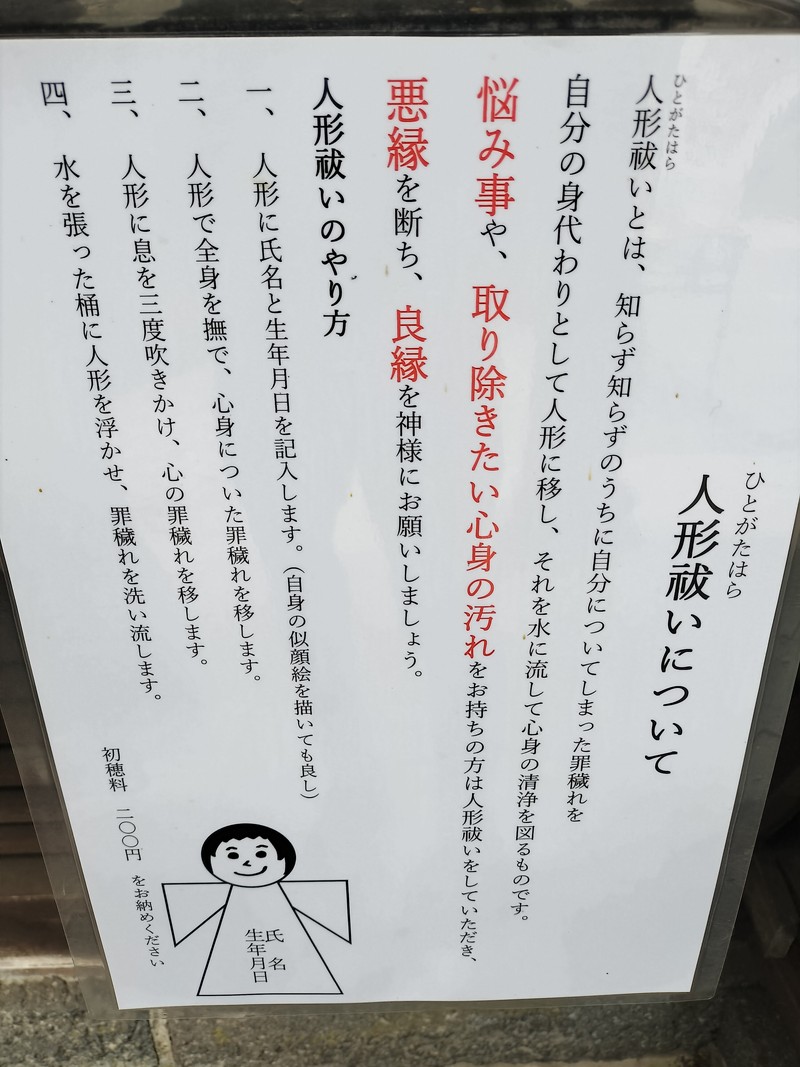 ひとがたはら
人形祓いについて
ひとがたはら
人形祓いとは、知らず知らずのうちに自分についてしまった罪穢れを
自分の身代わりとして人形に移し、それを水に流して心身の清浄を図るものです。
悩み事や、取り除きたい心身の汚れをお持ちの方は人形祓いをしていただき、
悪縁を断ち、良縁を神様にお願いしましょう。
人形祓いのやり方
一、人形に氏名と生年月日を記入します。（自身の似顔絵を描いても良し）
二、人形で全身を撫で、心身についた罪穢れを移します。
三、人形に息を三度吹きかけ、心の罪穢れを移します。
四、水を張った桶に人形を浮かせ、罪穢れを洗い流します。
初穂料 二〇〇円 をお納めください
氏名
生年月日